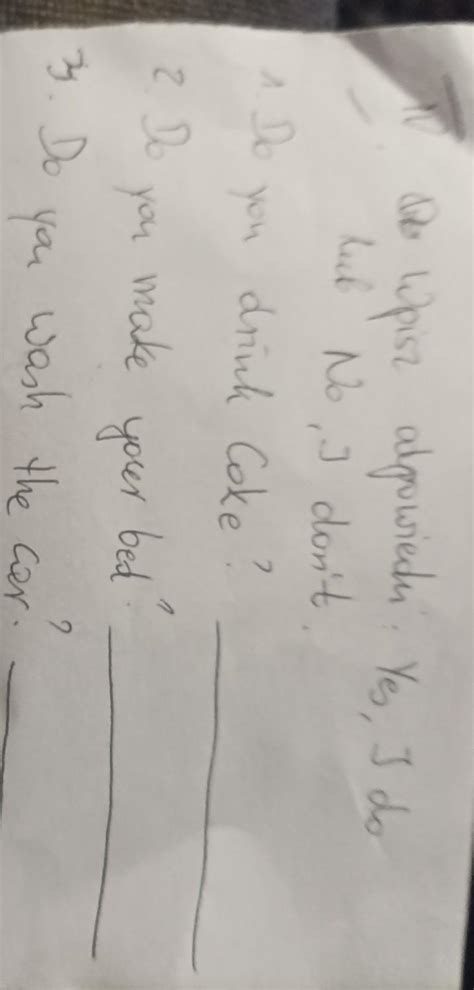 IV. Wpisz odpowiedni: Yes, I do
lub No, I don't.
1. Do you drink Coke?
2. Do you make your bed?
3. Do you wash the car?